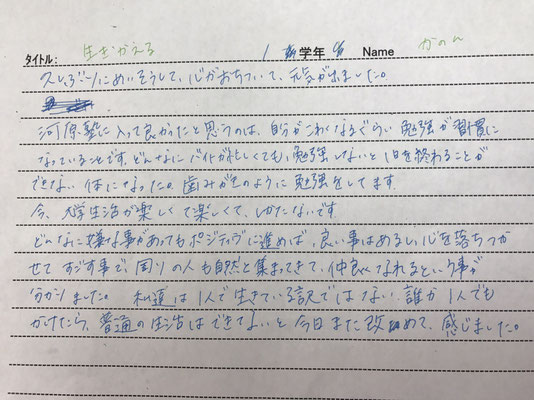 タイトル: 生きがえる 1 学年 Name かのん
久しぶりにめいそうして、心がおちついて、元気が出ました。
河原塾に入って良かったと思うのは、自分がこわくなるぐらい勉強が習慣に
なっていることです。どんなにバイトが忙しくても、勉強しないと1日を終わることが
できない体になった。歯みがきのように勉強をしてます。
今、大学生活が楽しくて楽しくて、しかたないです
どんなに嫌な事があってもポジティヴに進めば、良い事はあるし、心を落ちつか
せてすごす事で、周りの人も自然と集まってきて、仲良くなれるという事が
分かりました。私達は1人で生きている訳ではない。誰か1人でも
かけたら、普通の生活はできてないと今日また改めて、感じました。